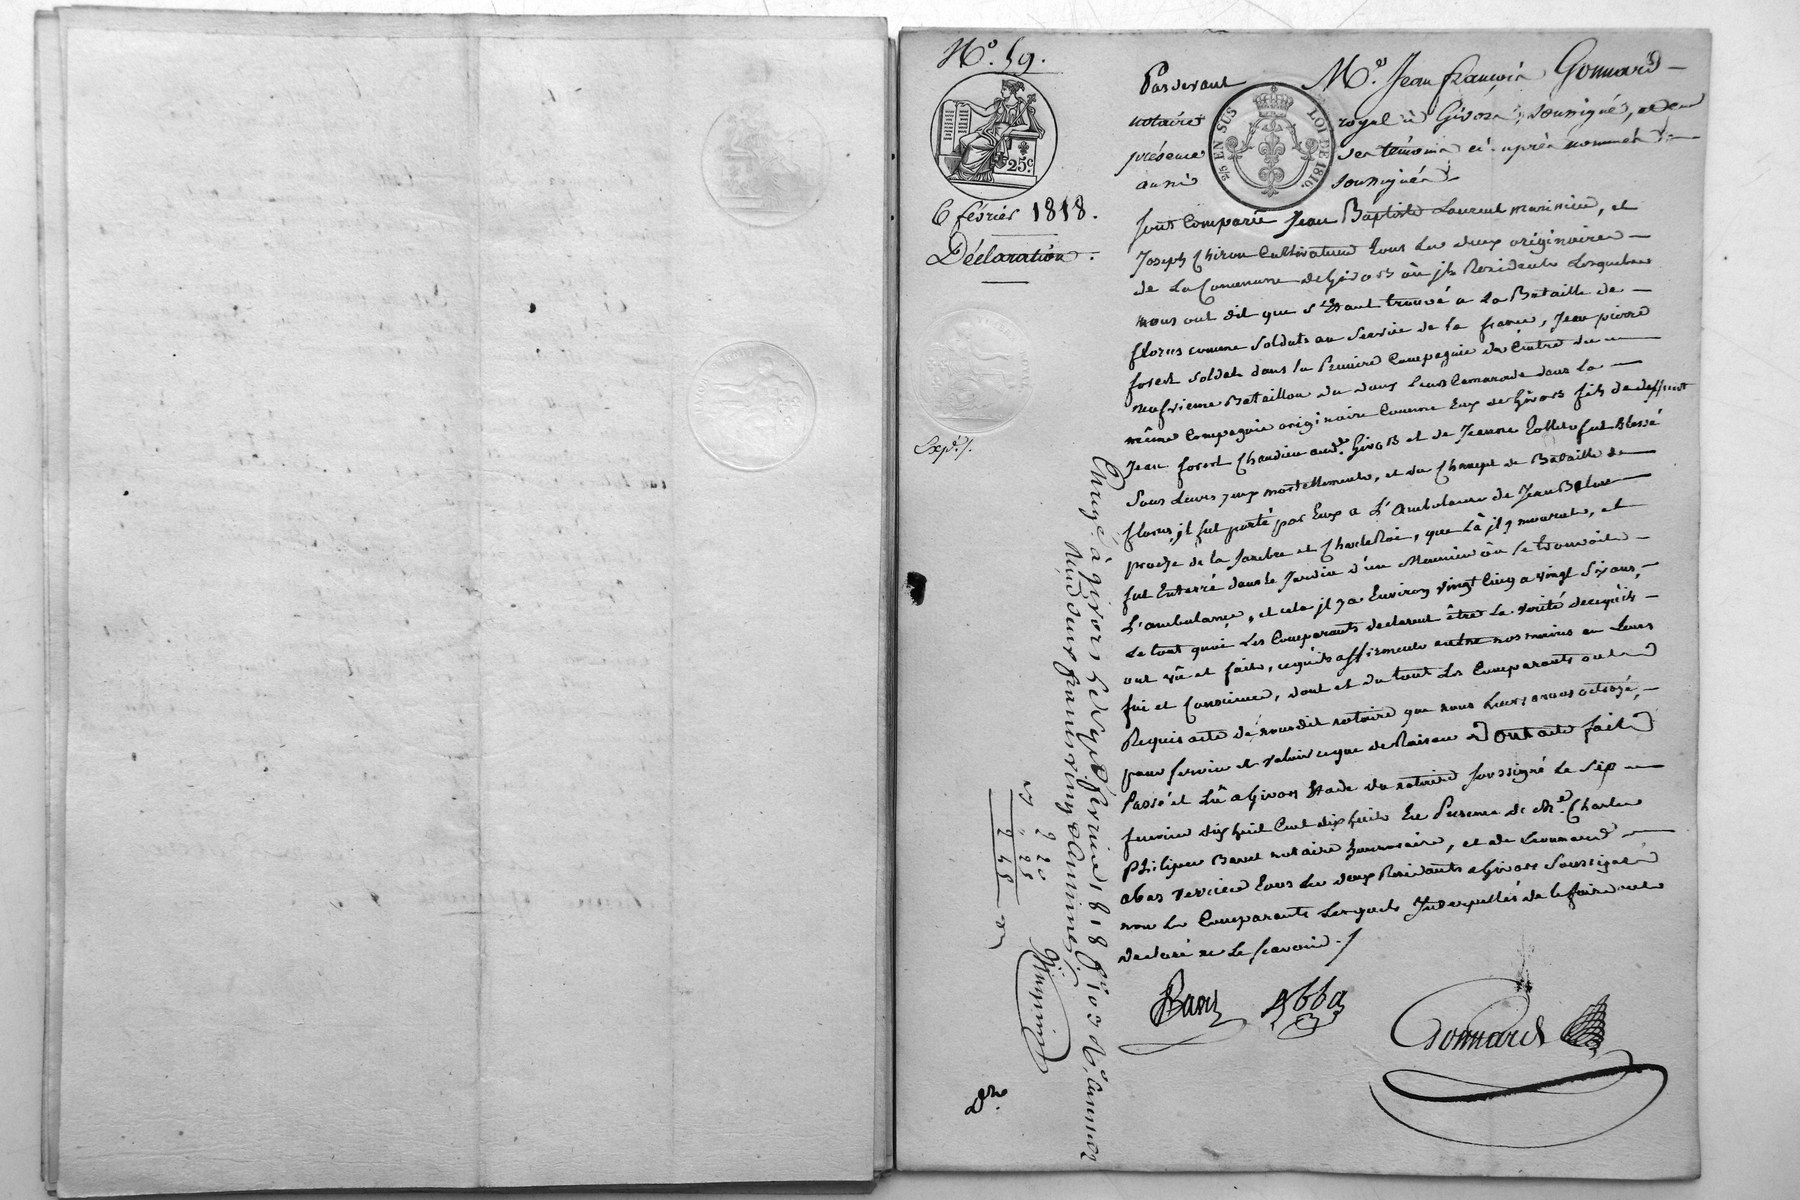 N.° 59.
25.c
6 février 1818.
Déclaration.
Exp.é /.
Pardevant M.e Jean françois Gonnard
notaire royal à Givors, soussigné, et en
présence des témoins ci-après nommés
aussi soussignés
EN SUS LOI DE 1816.
sont comparu Jean Baptiste Laurent marinier, et
Joseph Chiron Cultivateur tous les deux originaires
de La Commune de Givors où ils Résident Lesquels
nous ont dit que s'étant trouvé a la Bataille de
florus comme Soldats au Service de la france, Jean pierre
forest Soldat dans la Compagnie du Centre du
neufvieme Bataillon du leur Camarade dans la
même Compagnie originaire Comme Eux de Givors fils de deffunt
Jean forest et de Jeanne fut Blessé
Sous Leurs yeux mortellement, et du Champ de Bataille de
florus, il fut porté par Eux a L'Ambulance de
proche de la Sambre et CharleRoi, que Là il y mourut, et
fut Enterré dans le Jardin d'un Meunier où se trouvoit
L'ambulance, et cela il y a Environ vingt Cinq a vingt Six ans,
Le tout quoi Les Comparants declarent être La vérité de ce qu'ils
ont vû et fait, ce qu'ils affirment entre nos mains en Leurs
foi et Conscience, dont et du tout Les Comparants ont
Requis acte de nousdit notaire que nous Leurs avons octroyé,
pour servir et valoir ce que de Raison Dont acte fait
Passé et Lû a Givors Etude du notaire soussigné Le Six
fevrier dix huit Cent dix huit En Presence de M.e Charles
Philippe notaire honnoraire, et de
abas verrier tous les deux Résidants a Givors Soussignés
non Les Comparants Lesquels Interpellés de le faire ont
declaré ne Le Scavoir. /
Gonnard
Enreg.é à givors le sept février 1818 f.o 103
Reçu deux francs vingt centimes
2 20
25
2 45